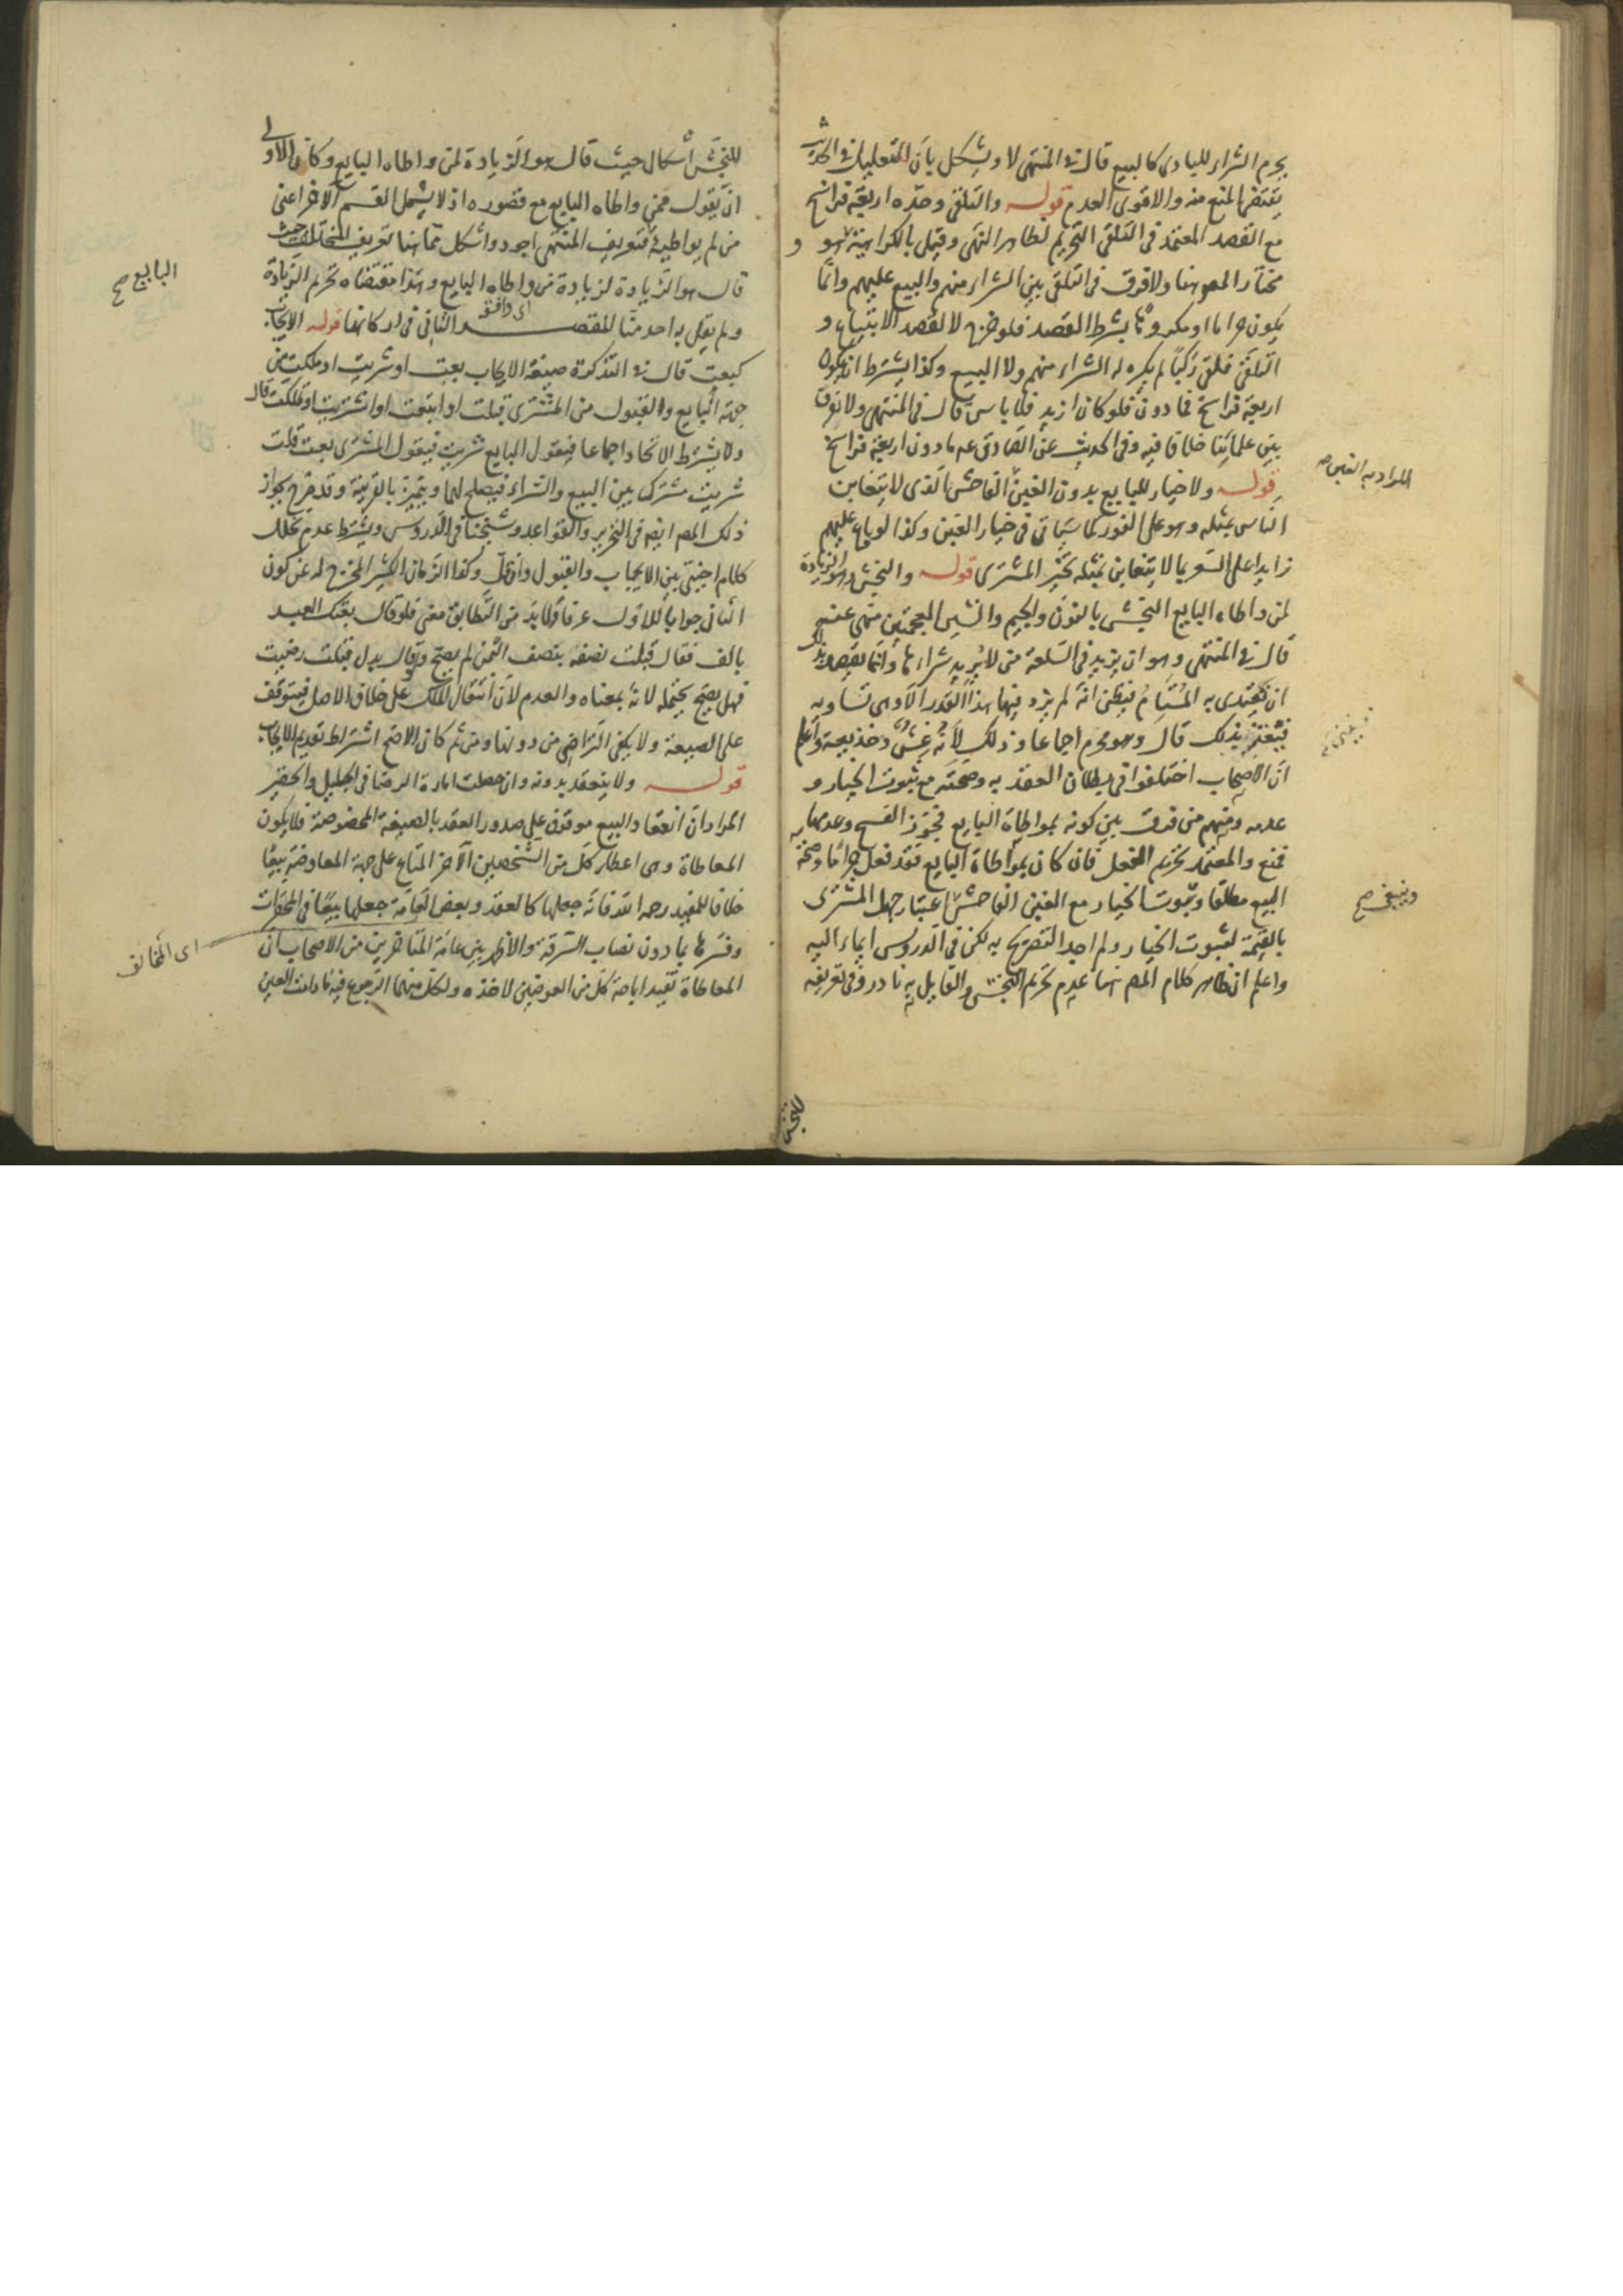 يحرم الشراء للبادى كالبيع قال في المنتهى لا ويشكل بان التعليل في الحديث
يقتضى المنع منه والاقوى العدم قوله والتلقى وحده اربعة فراسخ
مع القصد المعتمد فى التلقى التحريم لظاهر النهى وقيل بالكراهية وهو
مختار المص هنا ولا فرق فى التلقى بين الشراء منهم والبيع عليهم وانما
يكون حراما او مكروها بشرط القصد فلو خرج لا لقصد الابتياع و
التلقى فلقى ركبا لم يكره له الشراء منهم ولا البيع وكذا يشترط ان يكون
اربعة فراسخ فما دون فلو كان ازيد فلا باس قال فى المنتهى ولا نعرف
بين علمائنا خلافا فيه وفى الحديث عن الصادق عه ما دون اربعة فراسخ
قوله ولا خيار للبايع بدون الغبن الفاحش الذى لا يتغابن
الناس بمثله وهو على الفور كما سياتى فى خيار الغبن وكذا لو باع عليهم
زايدا على السعر بما لا يتغابن بمثله تخير المشترى قوله والنجش وهو الزيادة
لمن واطاه البايع النجش بالنون والجيم والشين المعجمتين منهى عنه
قال في المنتهى وهو ان يزيد فى السلعة من لا يريد شراءها وانما يقصد بذلك
ان يقتدى به المستام فيظن انه لم يزد فيها هذا القدر الا وهى تساويه
فيغتر بذلك قال وهو محرم اجماعا وذلك لانه غش وخديعة واعلم
ان الاصحاب اختلفوا فى بطلان العقد به وصحته مع ثبوت الخيار و
عدمه ومنهم من فرق بين كونه بمواطاة البايع فجوز الفسخ وعدمها
فمنع والمعتمد تحريم الفعل فان كان بمواطاة البايع فقد فعل حراما وصحة
البيع مطلقا وثبوت الخيار مع الغبن الفاحش اعتبار جهل المشترى
بالقيمة لثبوت الخيار ولم اجد التصريح به لكن فى الدروس ايماء اليه
واعلم ان ظاهر كلام المص هنا عدم تحريم النجش والقايل به نادر وفى تعريفه
المراد به الغبن صح
وينبغى صح
للنجش
للنجش اشكال حيث قال هو الزيادة لمن واطاه البايع وكان الاولى
ان يقول ممن واطاه البايع مع قصوره اذ لا يشمل القسم الاخر اعنى
من لم يواطيه فتعريف المنتهى اجود واشكل مما هنا تعريف المختلف حيث
قال هو الزيادة لزيادة من واطاه البايع وهذا مقتضاه تحريم الزيادة
ولم يقل به احد منا المقصد الثانى فى اركانها قوله الايجاب
اى وافق
كبعت قال في التذكرة صيغة الايجاب بعت او شريت او ملكت من
جهة البايع والقبول من المشترى قبلت او ابتعت او اشتريت او تملكت قال
ولا يشترط الاتحاد اجماعا فيقول البايع شريت فيقول المشترى بعت قلت
شريت مشترك بين البيع والشراء فيصلح لهما ويتميز بالقرينة وقد صرح بجواز
ذلك المص ايضا فى التحرير والقواعد وشيخنا فى الدروس ويشترط عدم تخلل
كلام اجنبى بين الايجاب والقبول وان قل وكذا الزمان الكثير المخرج له عن كون
الثانى جوابا للاول عرفا ولا بد من التطابق معنى فلو قال بعتك العبد
بالف فقال قبلت نصفه بنصف الثمن لم يصح ولو قال بدل قبلت رضيت
فهل يصح يحتمله لانه بمعناه والعدم لان انتقال الملك على خلاف الاصل فيتوقف
على الصيغة ولا يكفى التراضى من دونها ومن ثم كان الاصح اشتراط تقديم الايجاب
قوله ولا ينعقد بدونه وان حصلت امارة الرضا فى الجليل والحقير
المراد ان انعقاد البيع موقوف على صدور العقد بالصيغة المخصوصة فلا يكون
المعاطاة وهى اعطاء كل من الشخصين الاخر المتاع على جهة المعاوضة بيعا
خلافا للمفيد رحمه الله فانه جعلها كالعقد وبعض العامة جعلها بيعا فى المحقرات
وفسرها بما دون نصاب السرقة والاظهر بين عامة المتاخرين من الاصحاب ان
المعاطاة تفيد اباحة كل من العوضين لاخذه ولكل منهما الرجوع فيه ما دامت العين
البايع صح
اى المخالف